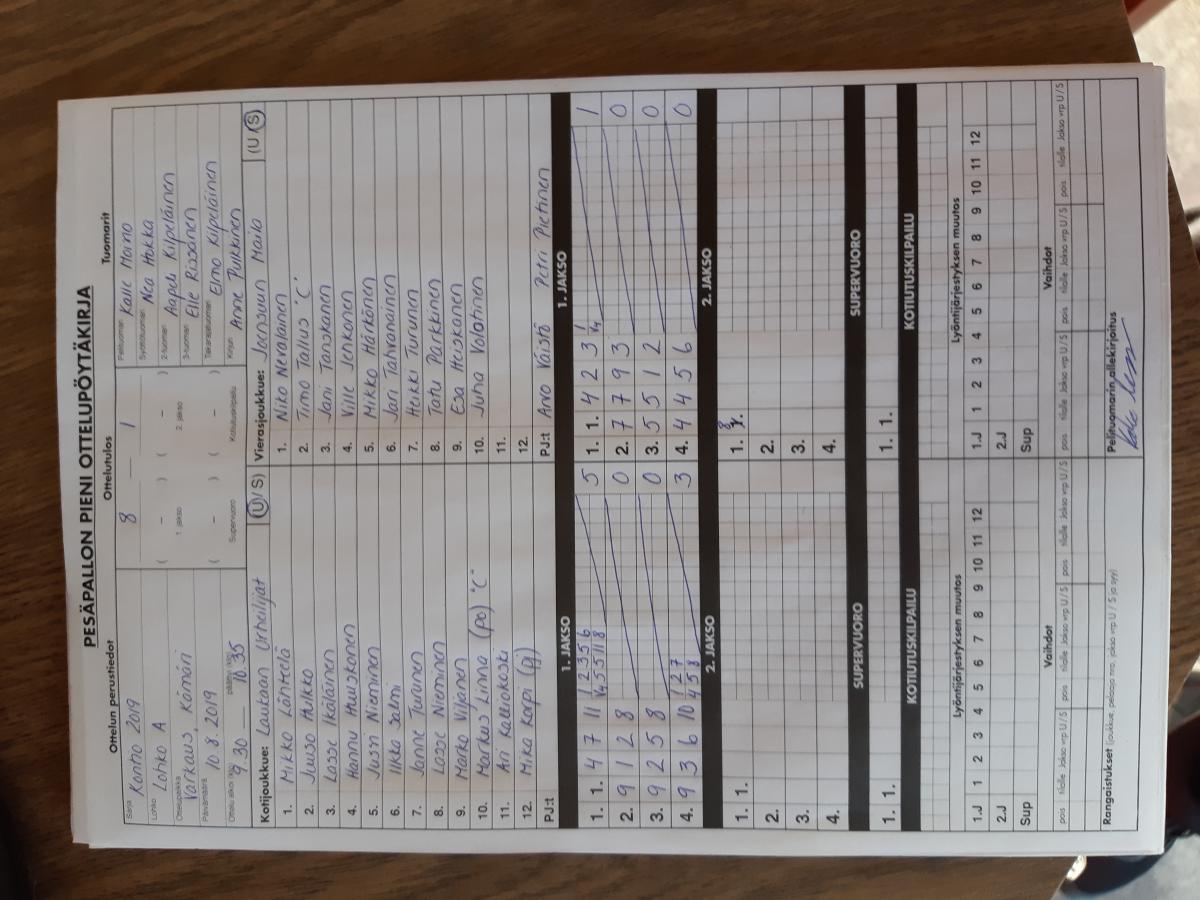 PESÄPALLON PIENI OTTELUPÖYTÄKIRJA
Ottelun perustiedot Ottelutulos Tuomarit
Sarja Kontio 2019
8 — 1
Pelituomari Kalle Moimo
Lohko Lohko A
Syöttötuomari Nea Hokka
Ottelupaikka Varkaus, Kämäri
( – ) ( – )
1. jakso 2. jakso
2-tuomari Aapeli Kilpeläinen
Päivämäärä 10.8.2019
3-tuomari Elle Rissanen
( – ) ( – )
Supervuoro Kotiutuskilpailu
Takarajatuomari Elmo Kilpeläinen
Ottelu alkoi (klo) 9.30 — päättyi (klo) 10.35
Kirjuri Anne Pulkkinen
Kotijoukkue: Laukaan Urheilijat (U/S)
Vierasjoukkue: Joensuun Maila (U/S)
1. Mikko Lähtelä 1. Niko Nevalainen
2. Juuso Hulkko 2. Timo Tallus "C"
3. Lasse Ikäläinen 3. Jani Tanskanen
4. Hannu Huuskonen 4. Ville Jenkonen
5. Jussi Nieminen 5. Mikko Härkönen
6. Ilkka Salmi 6. Jari Tahvanainen
7. Janne Turunen 7. Heikki Turunen
8. Lasse Nieminen 8. Tatu Parkkinen
9. Marko Viljanen 9. Esa Heiskanen
10. Markus Linna (po) "C" 10. Juha Volotinen
11. Ari Kalliokoski 11.
12. Mika Karpi (pj) 12.
PJ:t PJ:t Arvo Väistö Petri Pietinen
1. JAKSO 1. JAKSO
1. 1. 4 7 11 1 2 3 5 6 5 1. 1. 4 2 3 1 1
4 5 5 11 8 4
2. 9 1 2 8 0 2. 7 7 9 3 0
3. 9 2 5 8 0 3. 5 5 1 2 0
4. 9 3 6 10 1 2 7 3 4. 4 4 5 6 0
4 5 8
2. JAKSO 2. JAKSO
1. 1. 1. 8
2. 2.
3. 3.
4. 4.
SUPERVUORO SUPERVUORO
1. 1. 1. 1.
KOTIUTUSKILPAILU KOTIUTUSKILPAILU
Lyöntijärjestyksen muutos Lyöntijärjestyksen muutos
1.J 1 2 3 4 5 6 7 8 9 10 11 12 1.J 1 2 3 4 5 6 7 8 9 10 11 12
2.J 2.J
Sup Sup
Vaihdot Vaihdot
pois tilalle Jakso vrp U/S pois tilalle Jakso vrp U/S pois tilalle Jakso vrp U/S pois tilalle Jakso vrp U/S pois tilalle Jakso vrp U/S pois tilalle Jakso vrp U/S
Rangaistukset (joukkue, pelaaja nro, jakso vrp U / S ja syy) Pelituomarin allekirjoitus